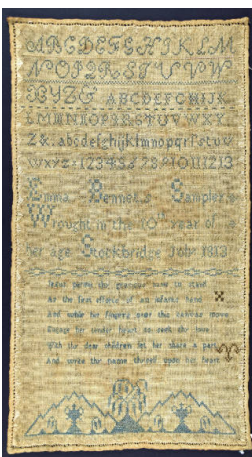 ABCDEFGHIKLM
NOPQRSTUVW
XYZ& ABCDEFGHIJK
LMNNOPQRSTUVWXY
Z&.abcdefghijklmnopqrſstuv
wxyz1234567891011213
Emma Bennet's Sampler
Wrought in the 10th year of
her age Stockbridge July 1813
Jesus permit thy gracious name to stand
As the first efforts of an infants hand
And while her fingers over this canvas move
Engage her tender heart to seek thy love
With thy dear children let her share a part
And write thy name thyself upon her heart